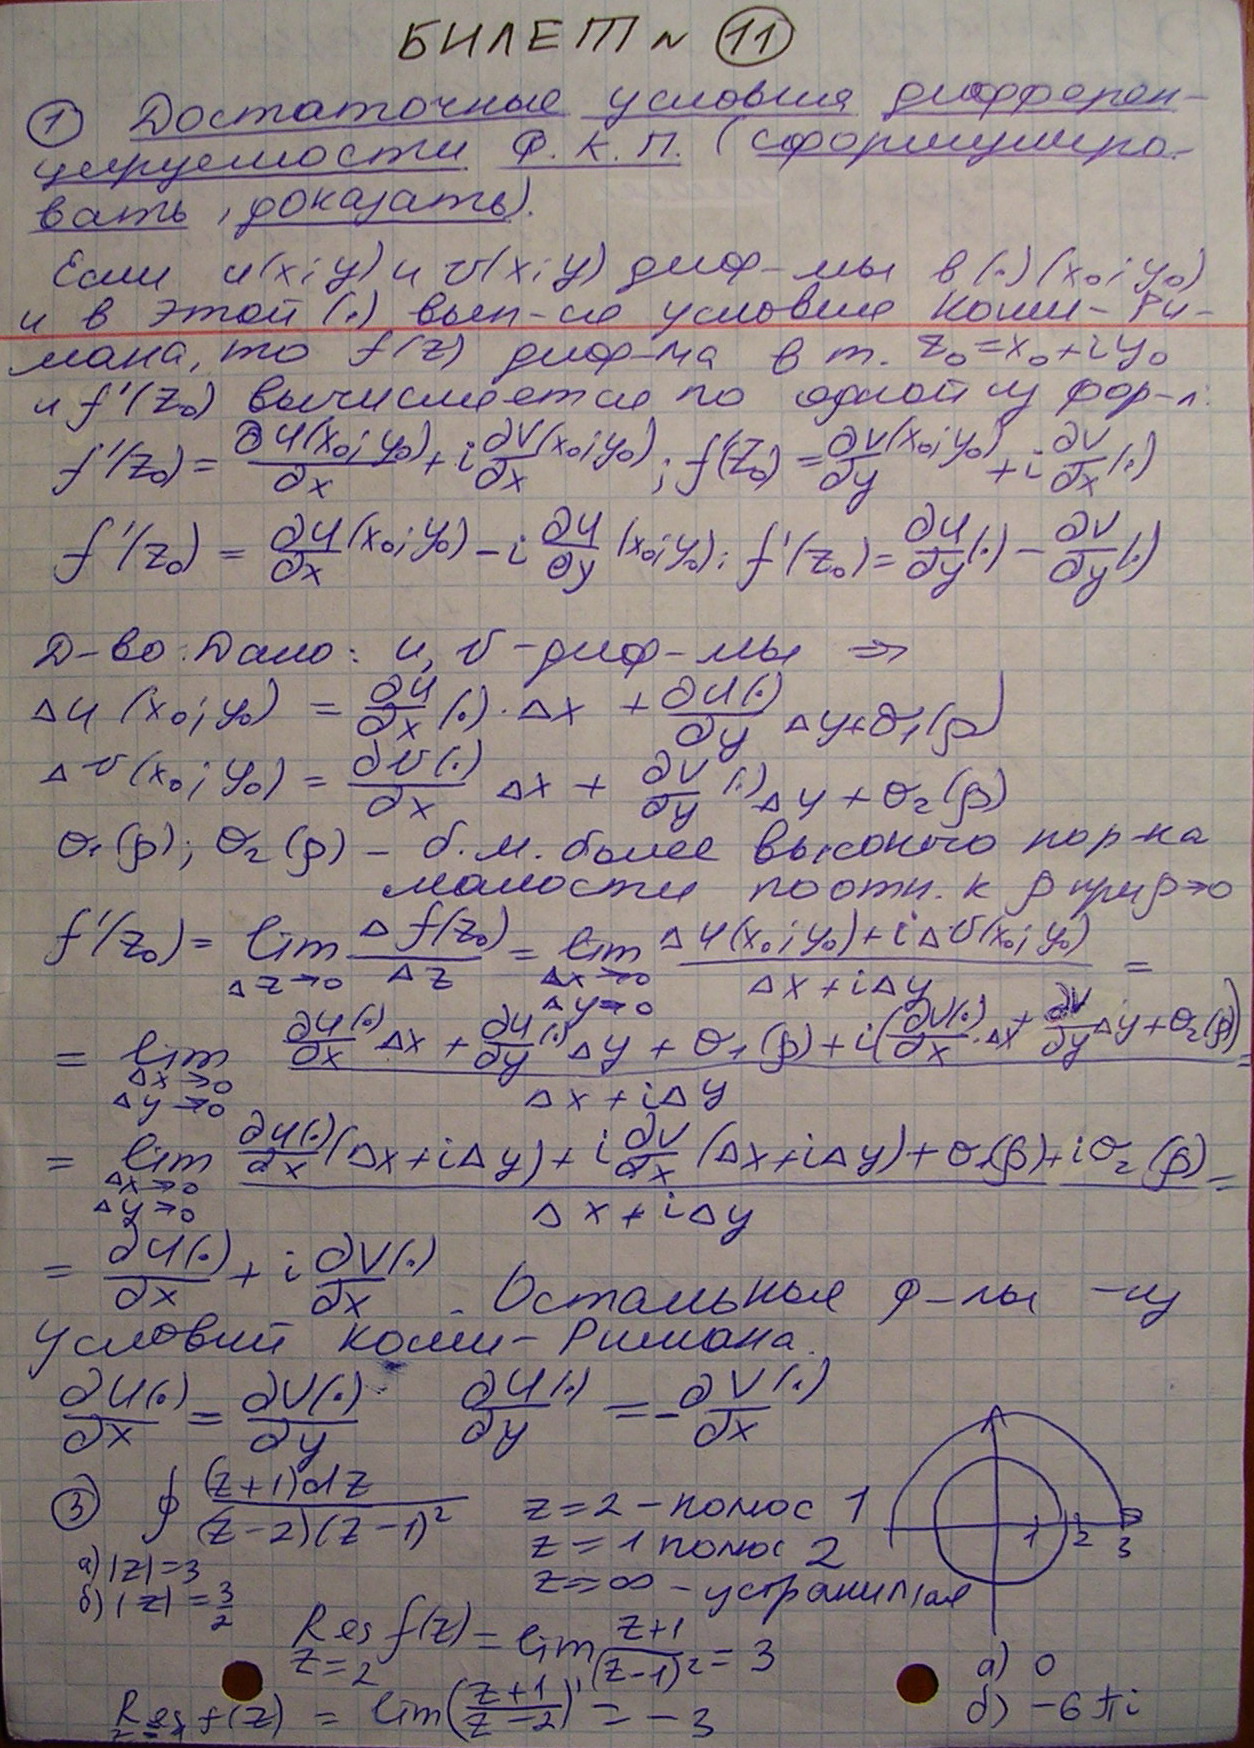 БИЛЕТ № 11
① Достаточные условия дифферен-
цируемости Ф.К.П. (сформулиро-
вать, доказать).
Если u(x;y) и v(x;y) диф-мы в (.) (x₀;y₀)
и в этой (.) вып-ся условие Коши-Ри-
мана, то f(z) диф-ма в т. z₀=x₀+iy₀
и f'(z₀) вычисляется по одной из фор-л:
f'(z₀) = ∂u(x₀;y₀)/∂x + i ∂v/∂x (x₀;y₀); f'(z₀) = ∂v/∂y (x₀;y₀) + i ∂v/∂x (.)
f'(z₀) = ∂u/∂x (x₀;y₀) - i ∂u/∂y (x₀;y₀); f'(z₀) = ∂u/∂y (.) - ∂v/∂y (.)
Д-во: Дано: u, v - диф-мы ⇒
Δu(x₀;y₀) = ∂u/∂x (.)·Δx + ∂u(.)/∂y Δy + σ₁(ρ)
Δv(x₀;y₀) = ∂v(.)/∂x Δx + ∂v/∂y (.) Δy + σ₂(ρ)
σ₁(ρ); σ₂(ρ) - б.м. более высокого пор-ка
малости по отн. к ρ при ρ→0
f'(z₀) = lim Δz→0 Δf(z₀)/Δz = lim Δx→0 Δy→0 (Δu(x₀;y₀) + iΔv(x₀;y₀))/(Δx+iΔy) =
= lim Δx→0 Δy→0 (∂u/∂x (.) Δx + ∂u/∂y (.) Δy + σ₁(ρ) + i(∂v(.)/∂x ·Δx + ∂v/∂y Δy + σ₂(ρ)))/(Δx+iΔy) =
= lim Δx→0 Δy→0 (∂u(.)/∂x (Δx+iΔy) + i ∂v/∂x (Δx+iΔy) + σ₁(ρ) + iσ₂(ρ))/(Δx+iΔy) =
= ∂u(.)/∂x + i ∂v(.)/∂x. Остальные ф-лы - из
условий Коши-Римана.
∂u(.)/∂x = ∂v(.)/∂y   ∂u(.)/∂y = -∂v(.)/∂x
③ ∮ (z+1)dz/((z-2)(z-1)²)
а) |z|=3
б) |z|=3/2
z=2 - полюс 1
z=1 полюс 2
z=∞ - устранимая
1 2 3
Res z=2 f(z) = lim (z+1)/(z-1)² = 3
Res f(z) = lim((z+1)/(z-2))' = -3
а) 0
б) -6πi